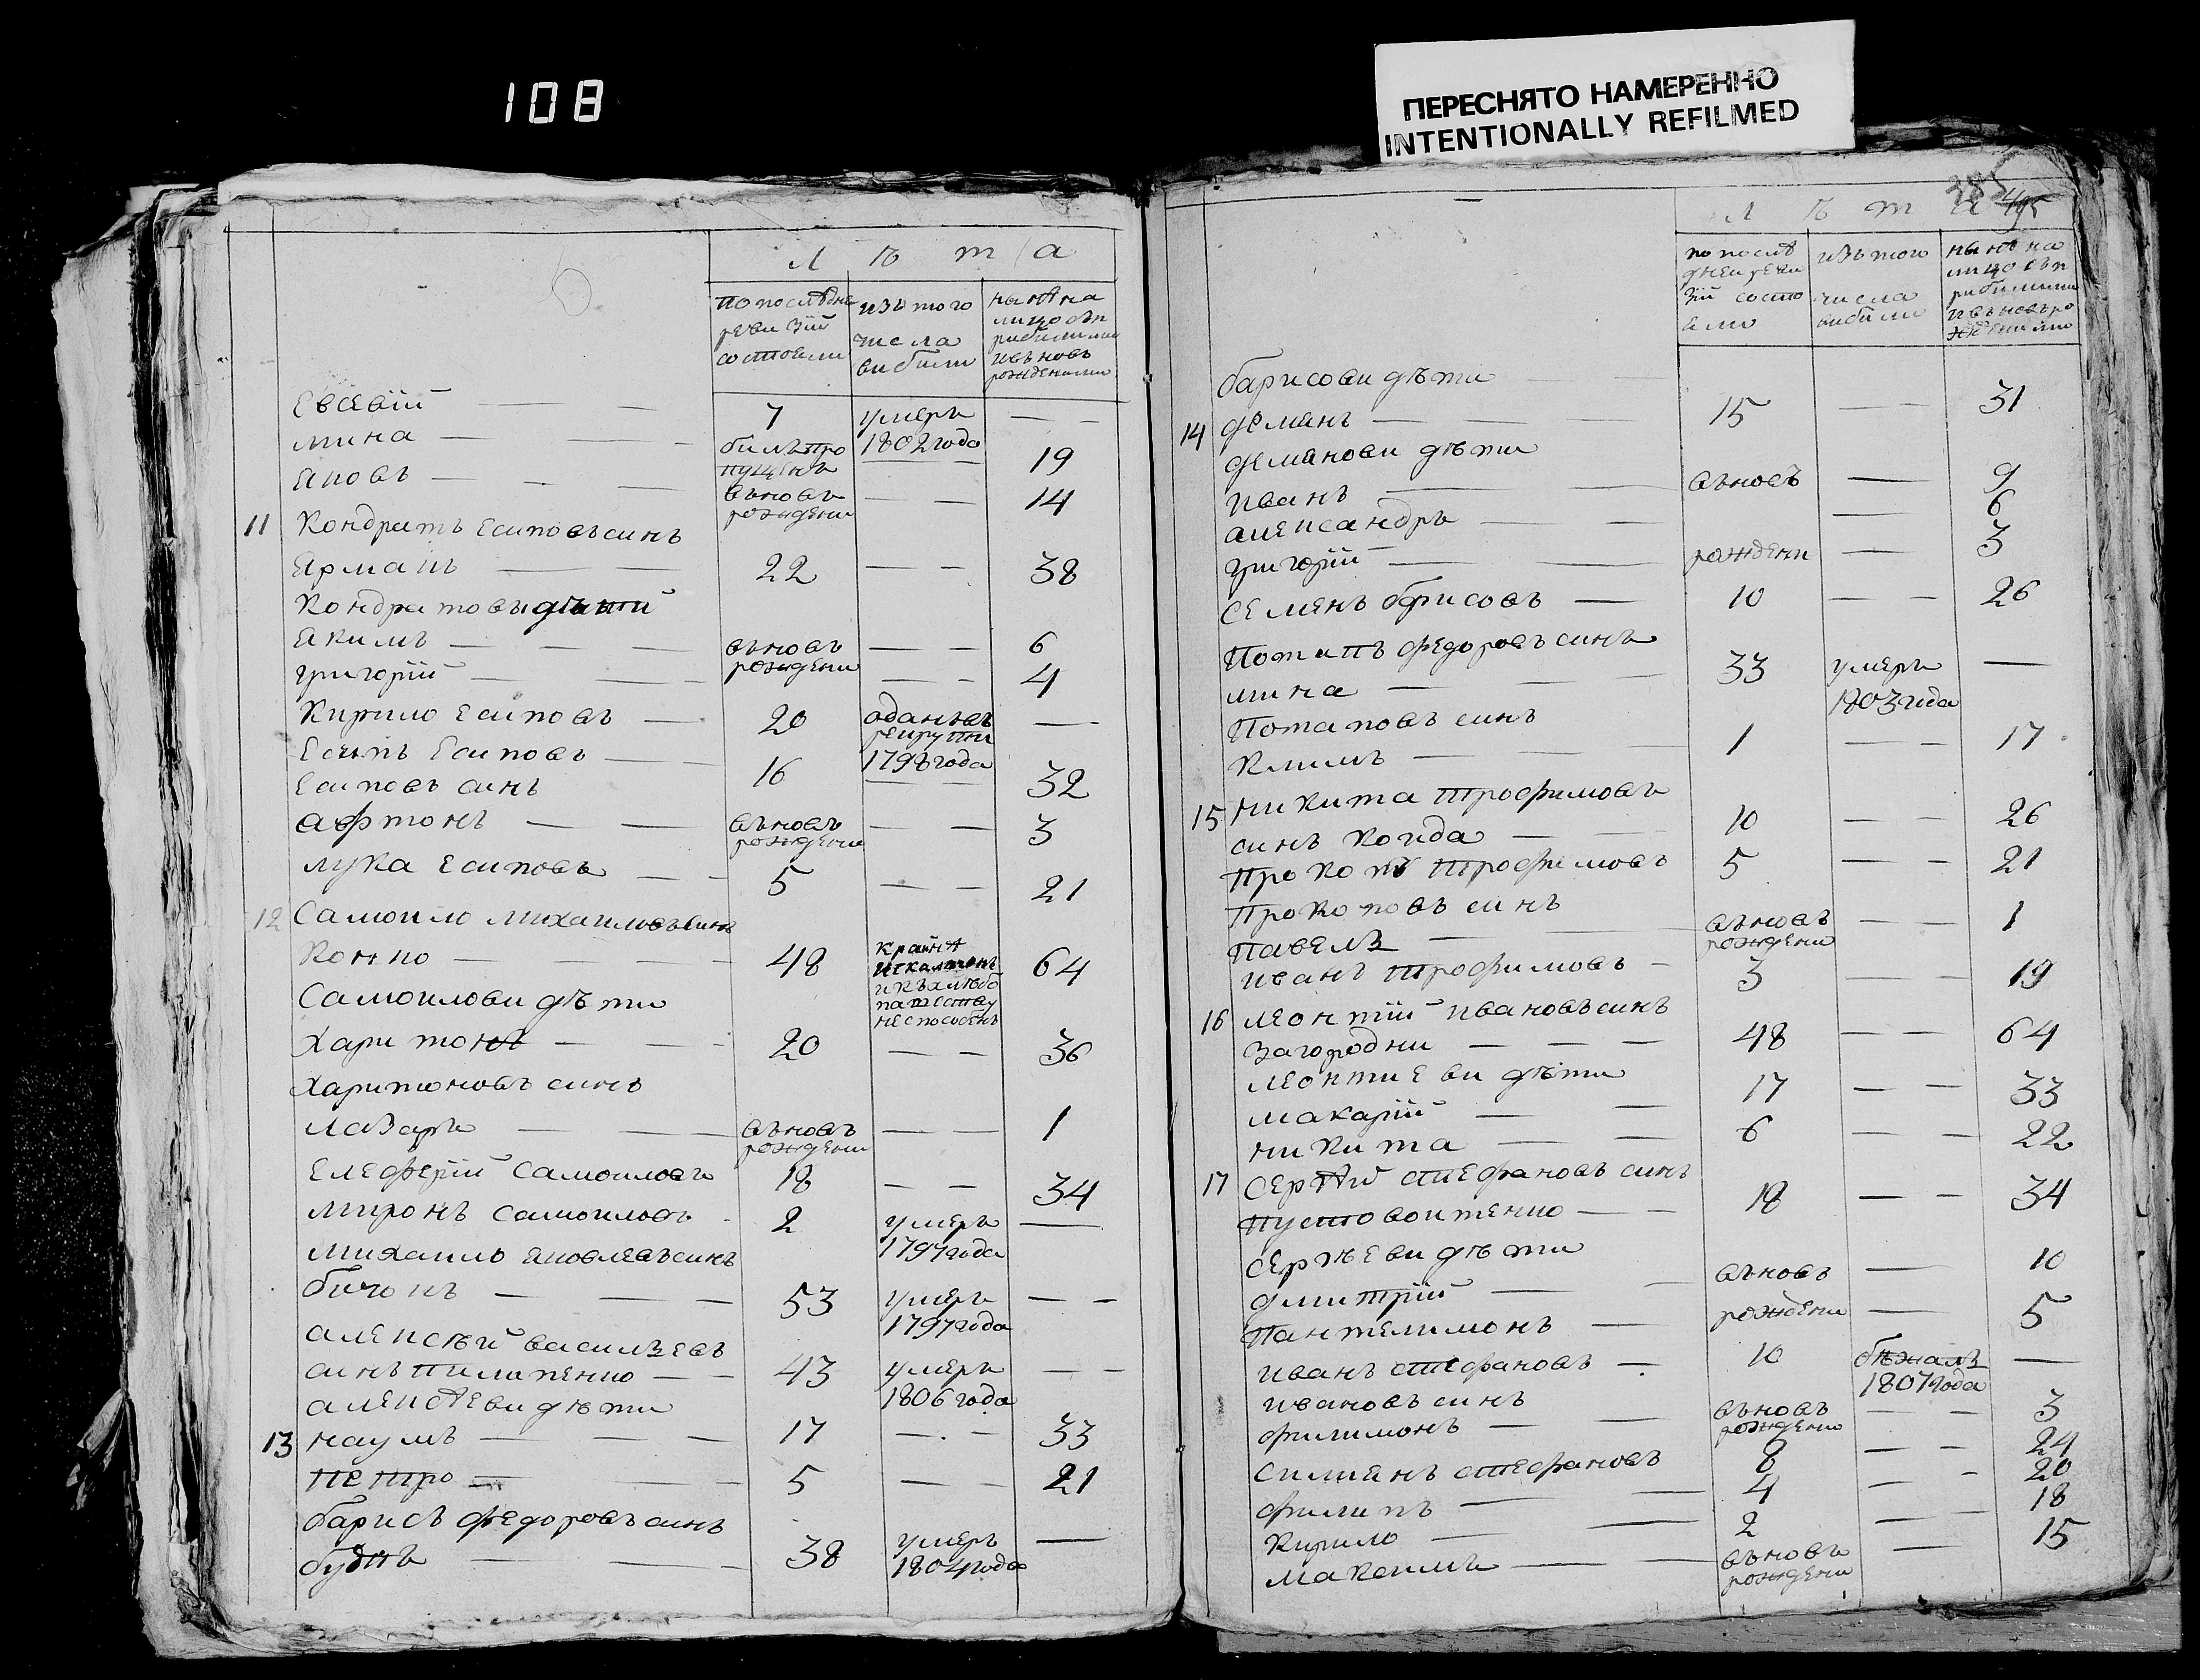 108
ПЕРЕСНЯТО НАМЕРЕННО
INTENTIONALLY REFILMED
Л ѣ т а
по послѣдне ревизiй состоели
изъ того числа вибили
нынѣ на лицо съ прибилими и въновь рожденими
Евсевiй — — 7 умеръ 1802 года — —
мина — — билъ пропущенъ — 19
яковъ — — — въновъ рождени — — 14
11 Кондратъ Есиповъ синъ
Ярмакъ — — 22 — — 38
Кондратови дѣтий
Якимъ — — — въновъ рождени — — 6
григорiй — — — — 4
Кирило Есиповъ — 20 оданъ въ рекрути 1798 года —
Есипъ Есиповъ — 16 — 32
Есиповъ синъ
афтонъ — — въновъ рождени — — 3
лука Есиповъ — — 5 — — 21
12 Самоило михаиловъ синъ
Конко — — 48 крайнѣ искалеченъ и къ хлѣбопашеству неспособенъ 64
Самоилови дѣти
Харитонъ — — 20 — — 36
Харитоновъ синъ
лазаръ — — въновъ рождени — — 1
Елеферiй Самоиловъ 18 — — 34
миронъ Самоиловъ 2 умеръ 1797 года —
михаило яковлевъ синъ
бичокъ — — — 53 умеръ 1797 года — —
алексѣй василзевъ
синъ пилипенко — — 43 умеръ 1806 года — —
алексѣеви дѣти
13 наумъ — — — 17 — — 33
петро — — 5 — — 21
барисъ федоровъ синъ
— — 38 умеръ 1804 года —
Л ѣ т а 495
385
по послѣдней ревизiй состояли
изъ того числа вибили
нынѣ на лицо съ прибилими и въновь рождениими
барисови дѣти
14 демянъ — — — 15 — — 31
демянови дѣти
иванъ — — въновъ — 9
александръ — — — 6
григорiй — — рождени — 3
Семенъ борисовъ — 10 — — 26
Потапъ федоровъ синъ
мина — — — 33 умеръ 1803 года —
Потаповъ синъ
климъ — — 1 — — 17
15 никита трофимовъ
синъ коида — — 10 — — 26
прокопъ трофимовъ 5 — — 21
прокоповъ синъ
павелз — — въновъ рождени — — 1
иванъ трофимовъ — 3 — — 19
16 леонтiй ивановъ синъ
загородни — — — 48 — — 64
леонтиеви дѣти
макарiй — — 17 — — 33
никита — — 6 — — 22
17 Сергѣй стефановъ синъ
пустовоитенко — — 18 — — 34
Сержеви дѣти
дмитрiй — — въновъ — 10
пантелимонъ — рождени — 5
иванъ стефановъ — 10 бѣжалз 1807 года —
ивановъ синъ
филимонъ — — въновъ рождени — — 3
Силиянъ стефановъ 8 — — 24
филипъ — — 4 — — 20
Кирило — — 2 — — 18
максимъ — — въновъ рождени — 15